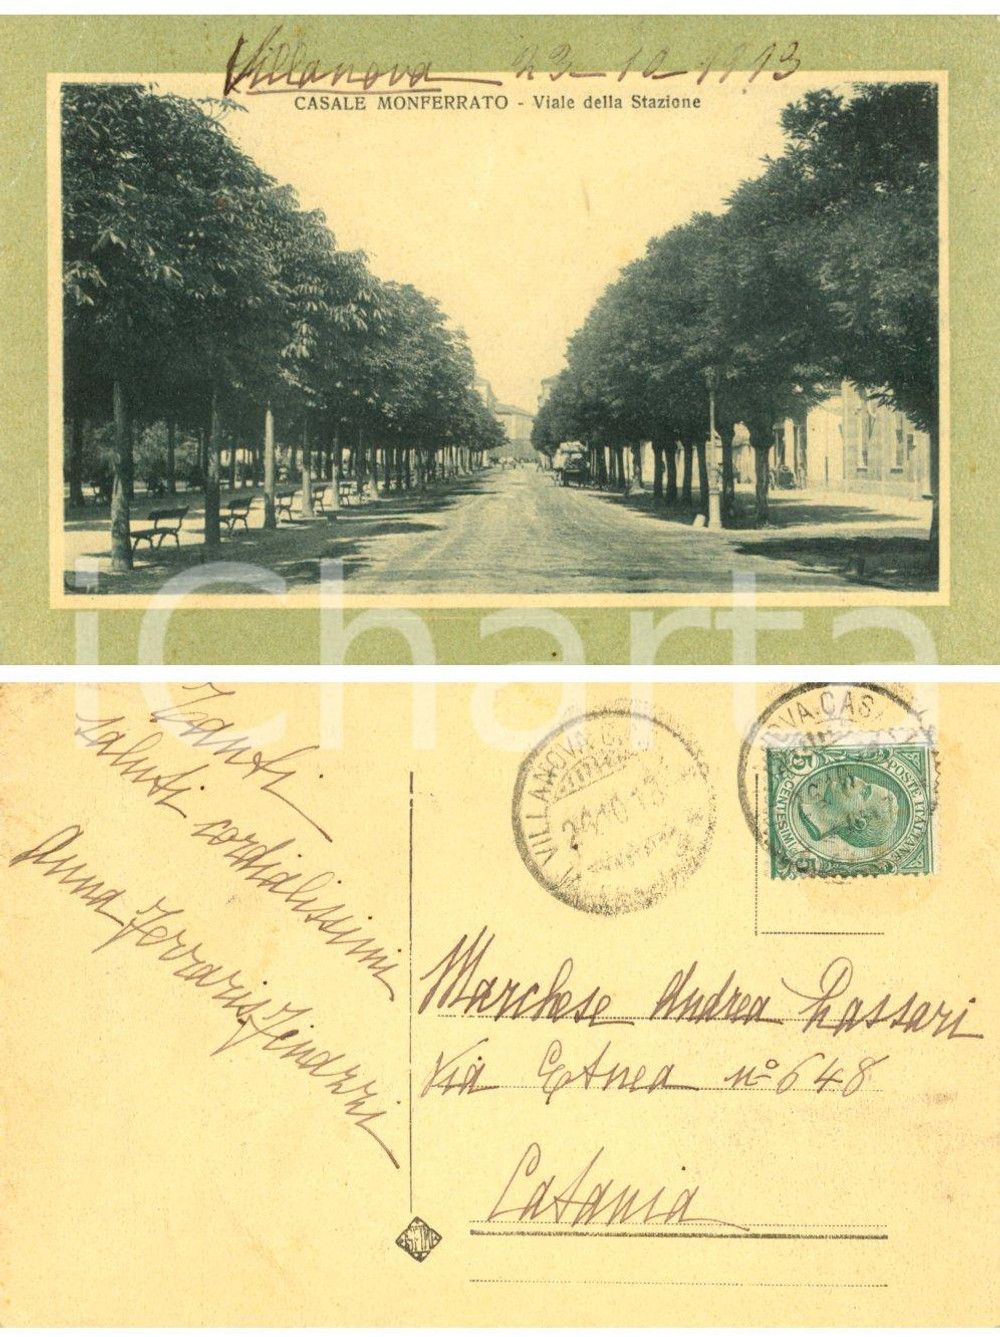 Villanova 23-10-1913
CASALE MONFERRATO - Viale della Stazione
iCharta
Tanti
saluti cordialissimi
Anna Ferraris
VILLANOVA C.
24.10.13
NOVA.CAS
POSTE ITALIANE
5 CENTESIMI 5
Marchese Andrea Rassari
Via Etnea nº 648
Catania